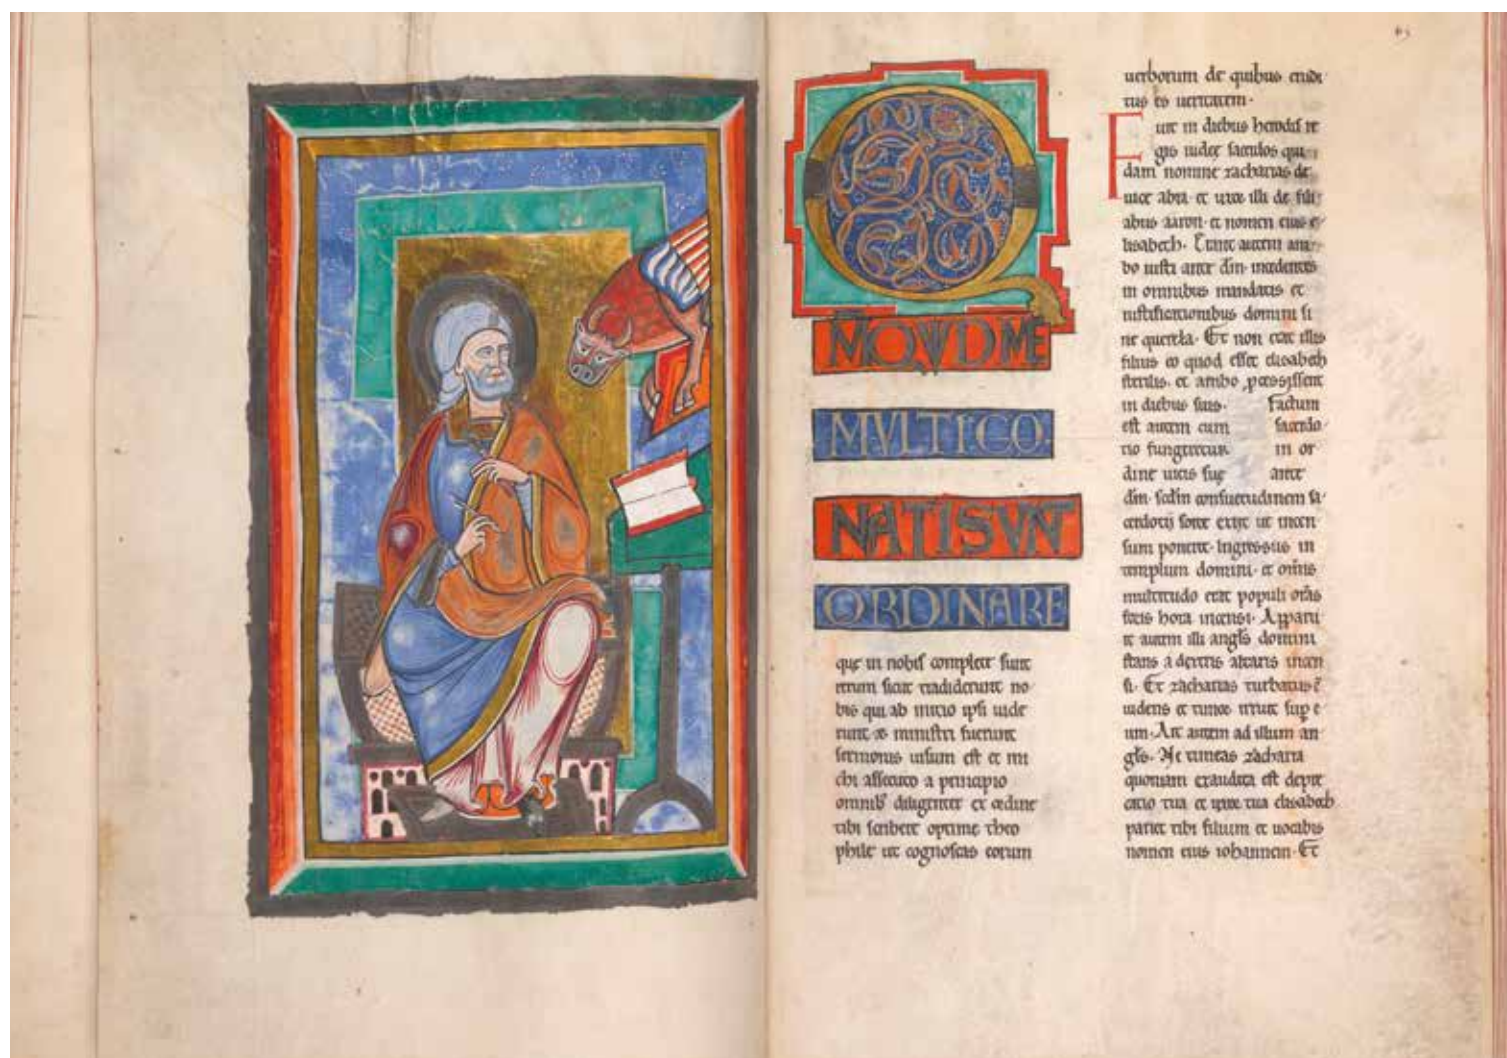 Q
M QVD ME
MVLTI CO
NATI SVNT
ORDINARE
que in nobis complete sunt
rerum sicut tradiderunt no
bis qui ab initio ipsi uide
runt & ministri fuerunt
sermonis uisum est et mi
chi assecuto a principio
omnib' diligenter ex ordine
tibi scribere optime theo
phile ut cognoscas eorum
uerborum de quibus erudi
tus es ueritatem.
Fuit in diebus herodis re
gis iudee sacerdos qui
dam nomine zacharias de
uice abia. et uxor illi de fili
abus aaron. et nomen eius e
lisabeth. Erant autem am
bo iusti ante dm. incedentes
in omnibus mandatis et
iustificationibus domini si
ne querela. Et non erat illis
filius eo quod esset elisabeth
sterilis. et ambo pcessissent
in diebus suis. Factum
est autem cum sacerdo
tio fungeretur in or
dine uicis sue ante
dm. scdm consuetudinem sa
cerdotij sorte exijt ut incen
sum poneret. Ingressus in
templum domini. et omis
multitudo erat populi oras
foris hora incensi. Apparu
it autem illi angls domini
stans a dextris altaris incen
si. Et zacharias turbatus e
uidens et timor irruit sup e
um. Ait autem ad illum an
gls. Ne timeas zacharia
quoniam exaudita est depre
catio tua et uxor tua elisabeth
pariet tibi filium et uocabis
nomen eius iohannem. Et